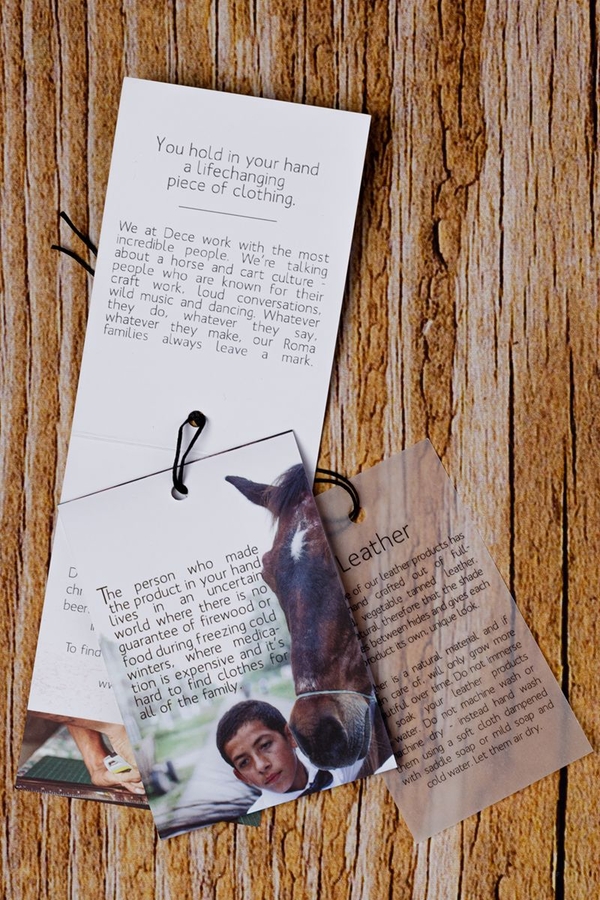 You hold in your hand
a lifechanging
piece of clothing.
We at Dece work with the most
incredible people. We're talking
about a horse and cart culture -
people who are known for their
craft work, loud conversations,
wild music and dancing. Whatever
they do, whatever they say,
whatever they make, our Roma
families always leave a mark.
D
chi
beer
To find
w
The person who made
the product in your hand
lives in an uncertain
world where there is no
guarantee of firewood or
food during freezing cold
winters, where medica-
tion is expensive and it's
hard to find clothes for
all of the family.
Leather
of our leather products has
crafted out of full-
vegetable tanned leather.
therefore that the shade
between hides and gives each
product its own, unique look.
is a natural material, and if
care of, will only grow more
over time. Do not immerse
soak your leather products
water. Do not machine wash or
dry - instead hand wash
them using a soft cloth dampened
with saddle soap or mild soap and
cold water. Let them air dry.